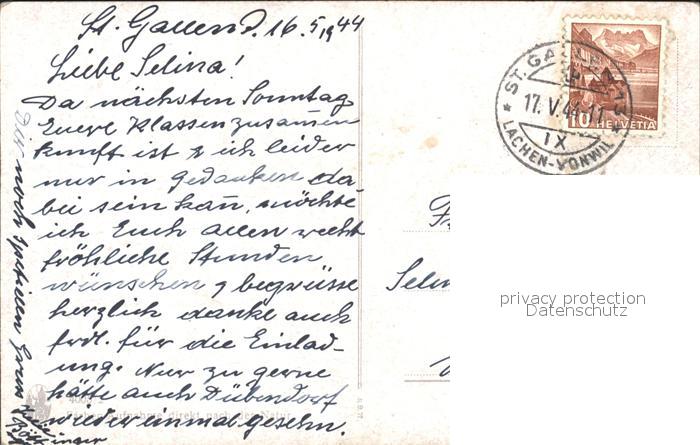 St. Gallen D. 16.5.1944
Liebe Selina!
Da nächsten Sonntag
Euere Klassenzusamen
kunft ist & ich leider
nur in Gedanken da-
bei sein kan̄, möchte
ich Euch allen recht
fröhliche Stunden
wünschen & begrüsse
herzlich danke auch
frdl. für die Einlad-
ung. Nur zu gerne
hätte auch Dübendorf
wieder einmal gesehn.
Dir noch speziellen Gruss
aufnahme direkt nach der Natur
ST. GALLEN
17. V. 44
IX
LACHEN-VONWIL
10 HELVETIA
Selin
privacy protection
Datenschutz